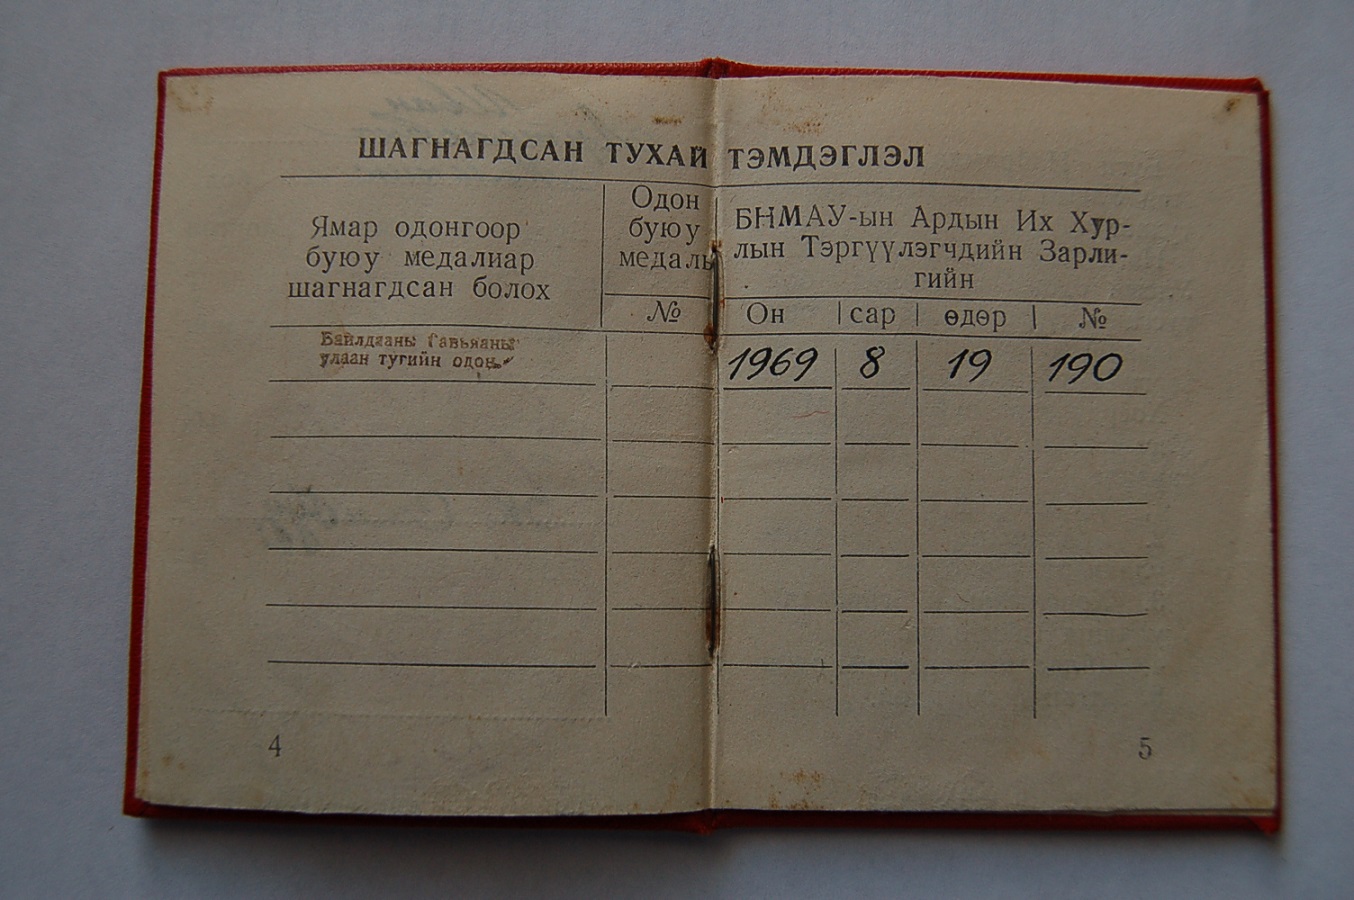 ШАГНАГДСАН ТУХАЙ ТЭМДЭГЛЭЛ
Ямар одонгоор
буюу медалиар
шагнагдсан болох
Одон
буюу
медаль
№
БНМАУ-ын Ардын Их Хур-
лын Тэргүүлэгчдийн Зарли-
гийн
Он сар өдөр №
Байлдааны Гавьяаны
улаан тугийн одон
1969 8 19 190
4
5